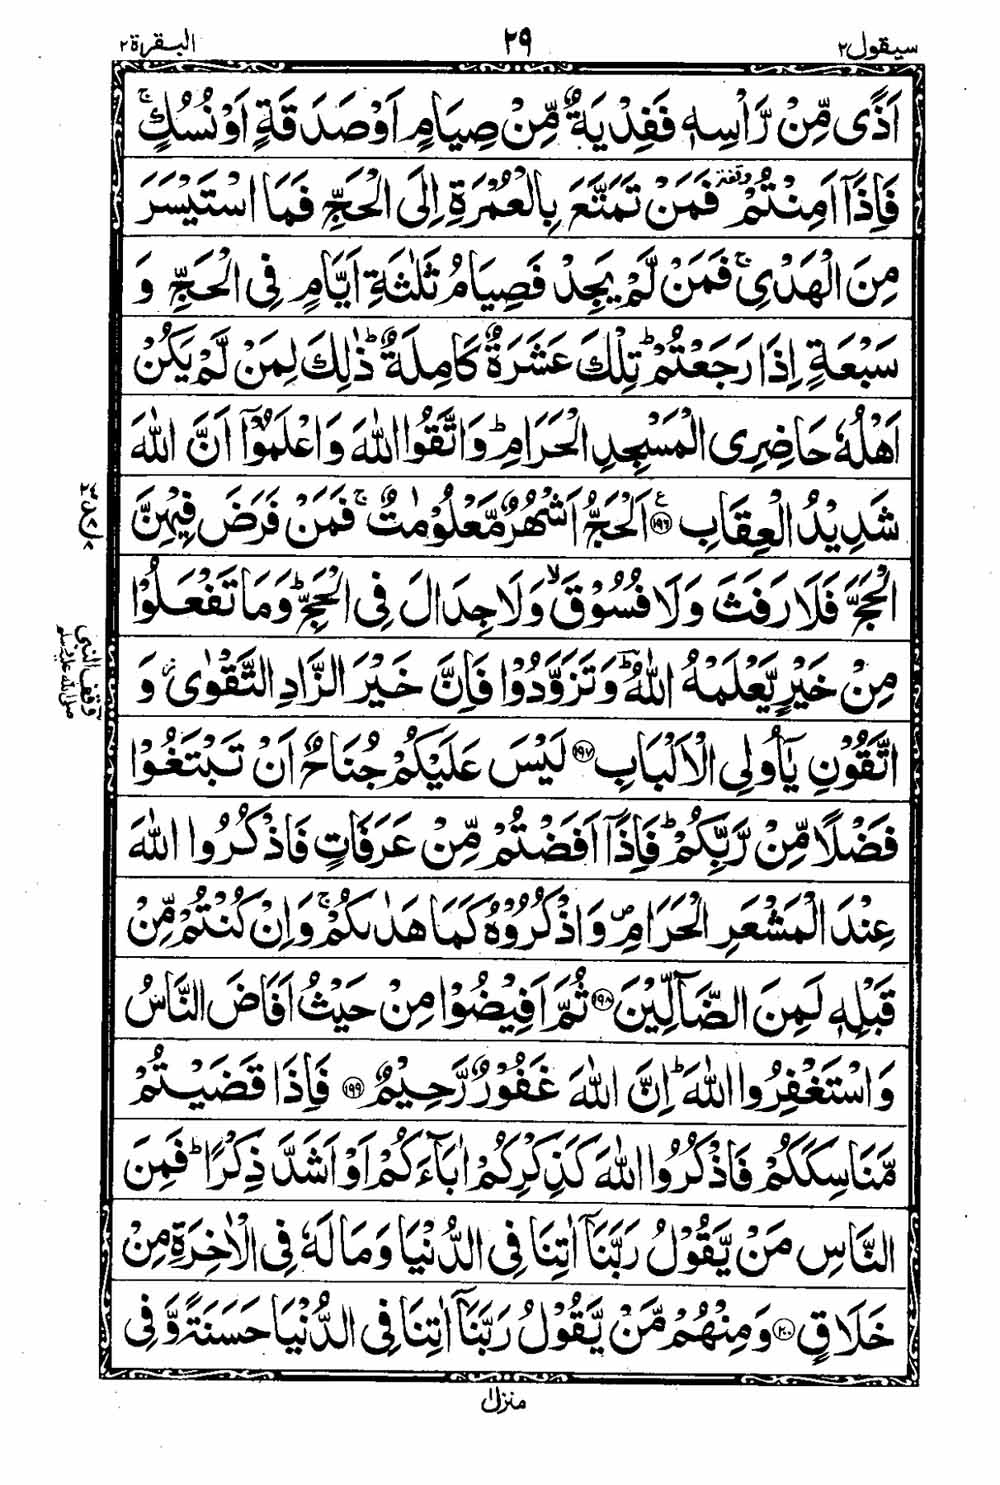 سيقول٢ ٢٩ البقرة٢
اَذًى مِّنْ رَّاْسِهٖ فَفِدْيَةٌ مِّنْ صِيَامٍ اَوْ صَدَقَةٍ اَوْ نُسُكٍ ۚ
فَاِذَاۤ اَمِنْتُمْ ٙ وقفة فَمَنْ تَمَتَّعَ بِالْعُمْرَةِ اِلَى الْحَجِّ فَمَا اسْتَيْسَرَ
مِنَ الْهَدْيِ ۚ فَمَنْ لَّمْ يَجِدْ فَصِيَامُ ثَلٰثَةِ اَيَّامٍ فِى الْحَجِّ وَ
سَبْعَةٍ اِذَا رَجَعْتُمْ ؕ تِلْكَ عَشَرَةٌ كَامِلَةٌ ؕ ذٰلِكَ لِمَنْ لَّمْ يَكُنْ
اَهْلُهٗ حَاضِرِى الْمَسْجِدِ الْحَرَامِ ؕ وَاتَّقُوا اللّٰهَ وَاعْلَمُوْۤا اَنَّ اللّٰهَ
شَدِيْدُ الْعِقَابِ ﴿١٩٦﴾ ع اَلْحَجُّ اَشْهُرٌ مَّعْلُوْمٰتٌ ۚ فَمَنْ فَرَضَ فِيْهِنَّ
الْحَجَّ فَلَا رَفَثَ وَلَا فُسُوْقَ ۙ وَلَا جِدَالَ فِى الْحَجِّ ؕ وَمَا تَفْعَلُوْا
مِنْ خَيْرٍ يَّعْلَمْهُ اللّٰهُ ؕ وَتَزَوَّدُوْا فَاِنَّ خَيْرَ الزَّادِ التَّقْوٰى ؗ وَ
وقف النبى صلى الله عليه وسلم
اتَّقُوْنِ يٰۤاُولِى الْاَلْبَابِ ﴿١٩٧﴾ لَيْسَ عَلَيْكُمْ جُنَاحٌ اَنْ تَبْتَغُوْا
فَضْلًا مِّنْ رَّبِّكُمْ ؕ فَاِذَاۤ اَفَضْتُمْ مِّنْ عَرَفَاتٍ فَاذْكُرُوا اللّٰهَ
عِنْدَ الْمَشْعَرِ الْحَرَامِ ۪ وَاذْكُرُوْهُ كَمَا هَدٰىكُمْ ۚ وَاِنْ كُنْتُمْ مِّنْ
قَبْلِهٖ لَمِنَ الضَّآلِّيْنَ ﴿١٩٨﴾ ثُمَّ اَفِيْضُوْا مِنْ حَيْثُ اَفَاضَ النَّاسُ
وَاسْتَغْفِرُوا اللّٰهَ ؕ اِنَّ اللّٰهَ غَفُوْرٌ رَّحِيْمٌ ﴿١٩٩﴾ فَاِذَا قَضَيْتُمْ
مَّنَاسِكَكُمْ فَاذْكُرُوا اللّٰهَ كَذِكْرِكُمْ اٰبَآءَكُمْ اَوْ اَشَدَّ ذِكْرًا ؕ فَمِنَ
النَّاسِ مَنْ يَّقُوْلُ رَبَّنَاۤ اٰتِنَا فِى الدُّنْيَا وَمَا لَهٗ فِى الْاٰخِرَةِ مِنْ
خَلَاقٍ ﴿٢٠٠﴾ وَمِنْهُمْ مَّنْ يَّقُوْلُ رَبَّنَاۤ اٰتِنَا فِى الدُّنْيَا حَسَنَةً وَّفِى
منزل١